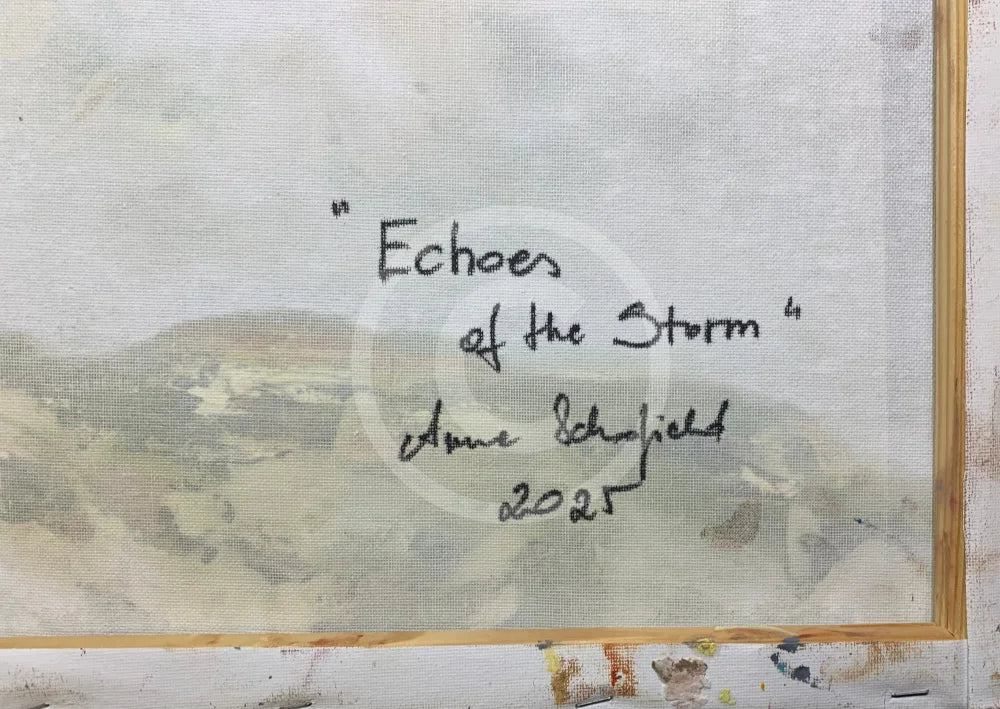 "Echoes
of the Storm"
Anne Schofield
2025
©